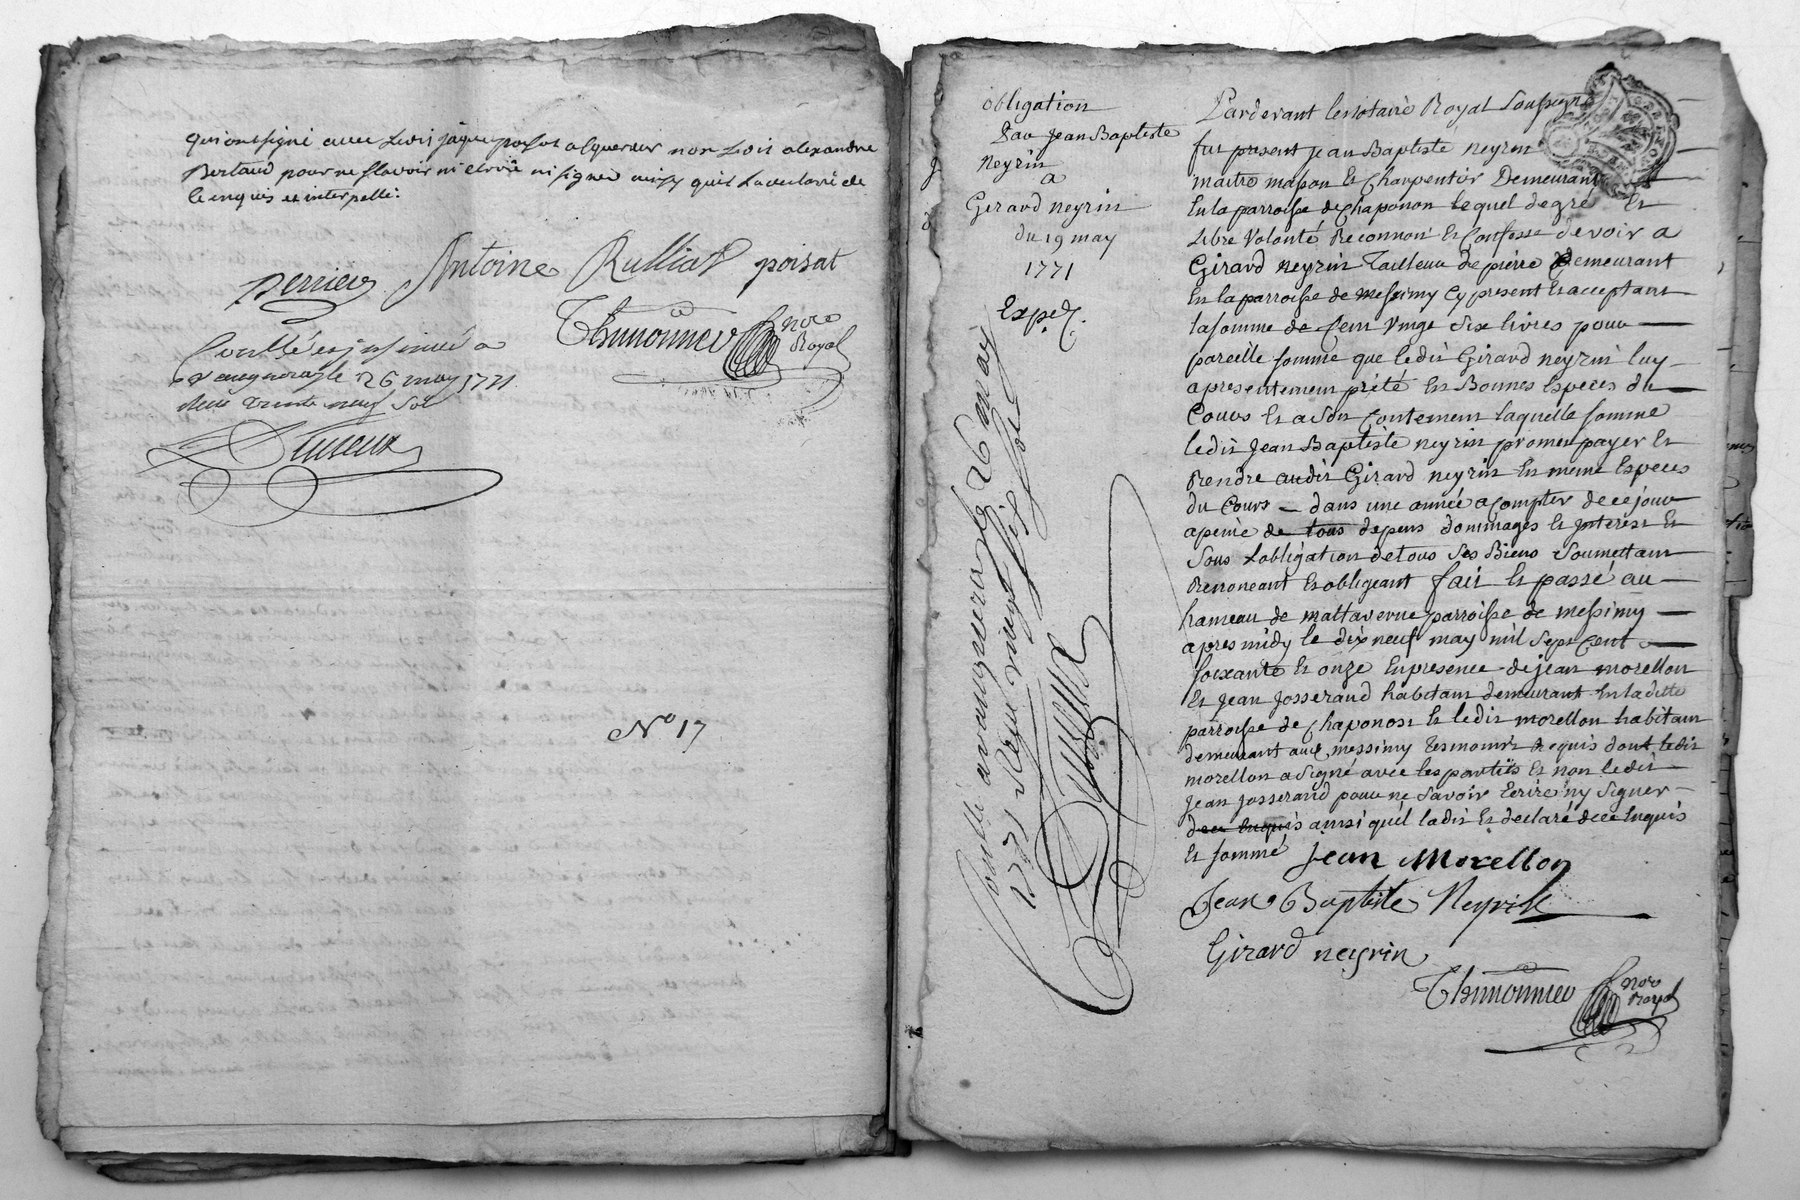 qui ont signé avec
Bertaud pour ne sçavoir ni écrire ni signer ainsy quil la declaré de
ce enquis et interpellé.
perrieu Antoine Rulliat poisat
Thimonnier nore
Royal
Controllé et insinué a
vaugneray le 26 may 1771
trente neuf sol
No 17
obligation
Par Jean Baptiste
Neyrin
a
Gerard neyrin
du 19 may
1771
Exped.
Controllé a vaugneray le 26 may
1771 Reçu vingt six sols
Pardevant le notaire Royal Soussigné
fut present Jean Baptiste neyrin
maitre masson et Charpentier Demeurant
En la parroisse de chaponon lequel de gré et
Libre volonté Reconnoit et Confesse devoir a
Girard neyrin Tailleur de pierre demeurant
En la parroisse de messimy cy present et acceptant
la somme de Cent vingt six livres pour
pareille somme que ledit Girard neyrin luy
a presentement prété en Bonnes Especes du
Cours et a son Contement laquelle somme
ledit Jean Baptiste neyrin promet payer et
Rendre audit Girard neyrin en meme Especes
du Cours dans une année a compter de ce jour
a peine de tous depens dommages et interest et
sous l'obligation de tous ses Biens soumettant
Renonceant et obligeant fait et passé au
hameau de mallaverne parroisse de messimy
apres midy le dix neuf may mil sept cent
soixante et onze en presence de jean morellon
et jean josserand habitant demeurant en ladite
parroisse de chaponost et ledit morellon habitant
demeurant audit messimy tesmoins Requis dont ledit
morellon a signé avec les partiës et non ledit
jean josserand pour ne savoir Ecrire ny signer
de ce enquis ainsi quél la dit et declaré de ce enquis
et sommé Jean Morellon
Jean Baptiste Neyrin
Girard neyrin
Thimonnier nore
Royal